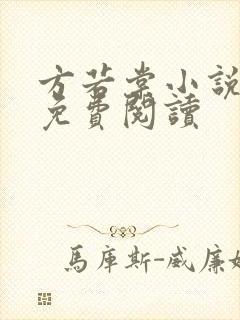 方若棠小說
免費閱讀
馬庫斯-威廉